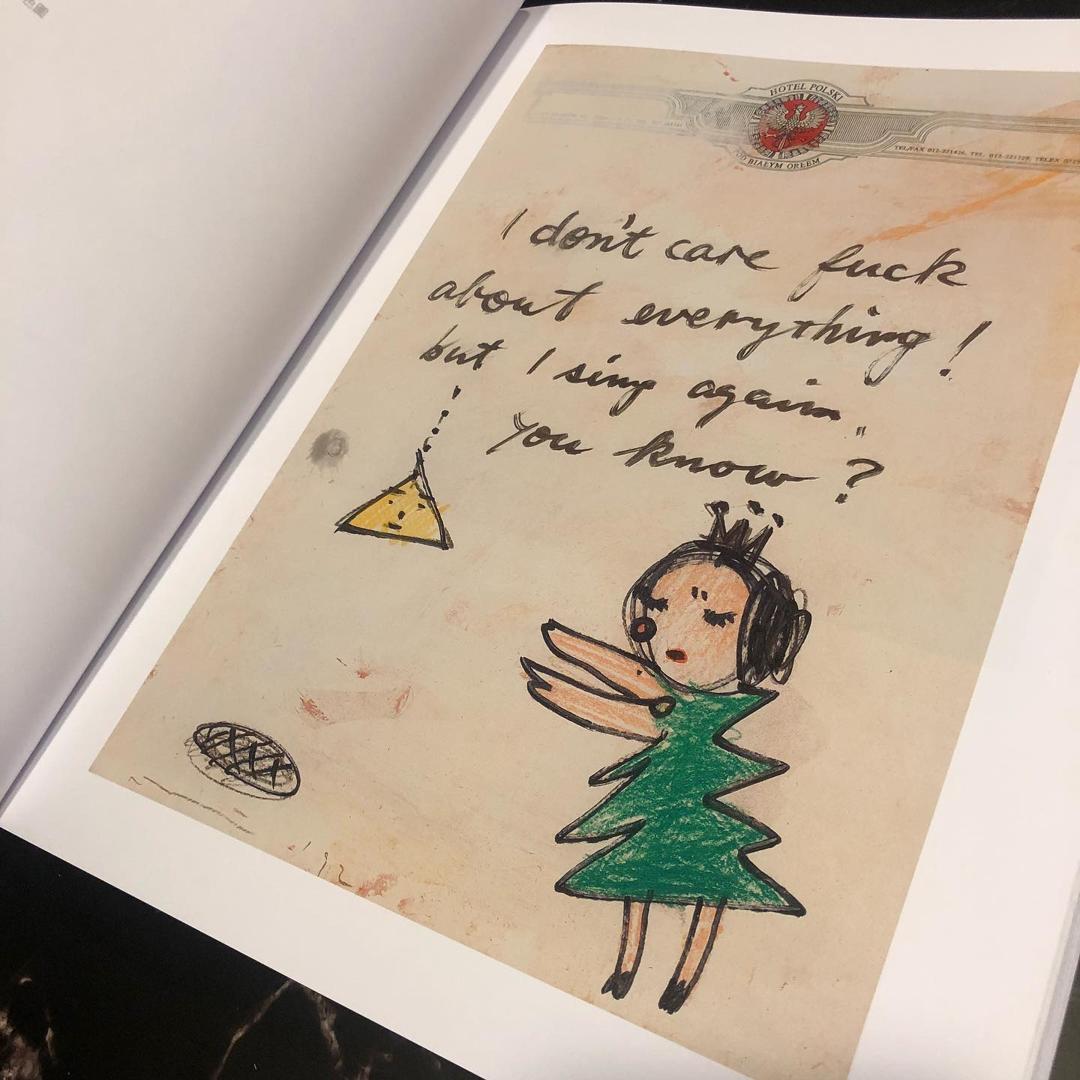 色圖
HOTEL POLSKI
POD BIAŁYM ORŁEM
TEL/FAX 012-221426, TEL. 012-221129, TELEX
I don't care fuck
about everything!
but I sing again
you know?
'92